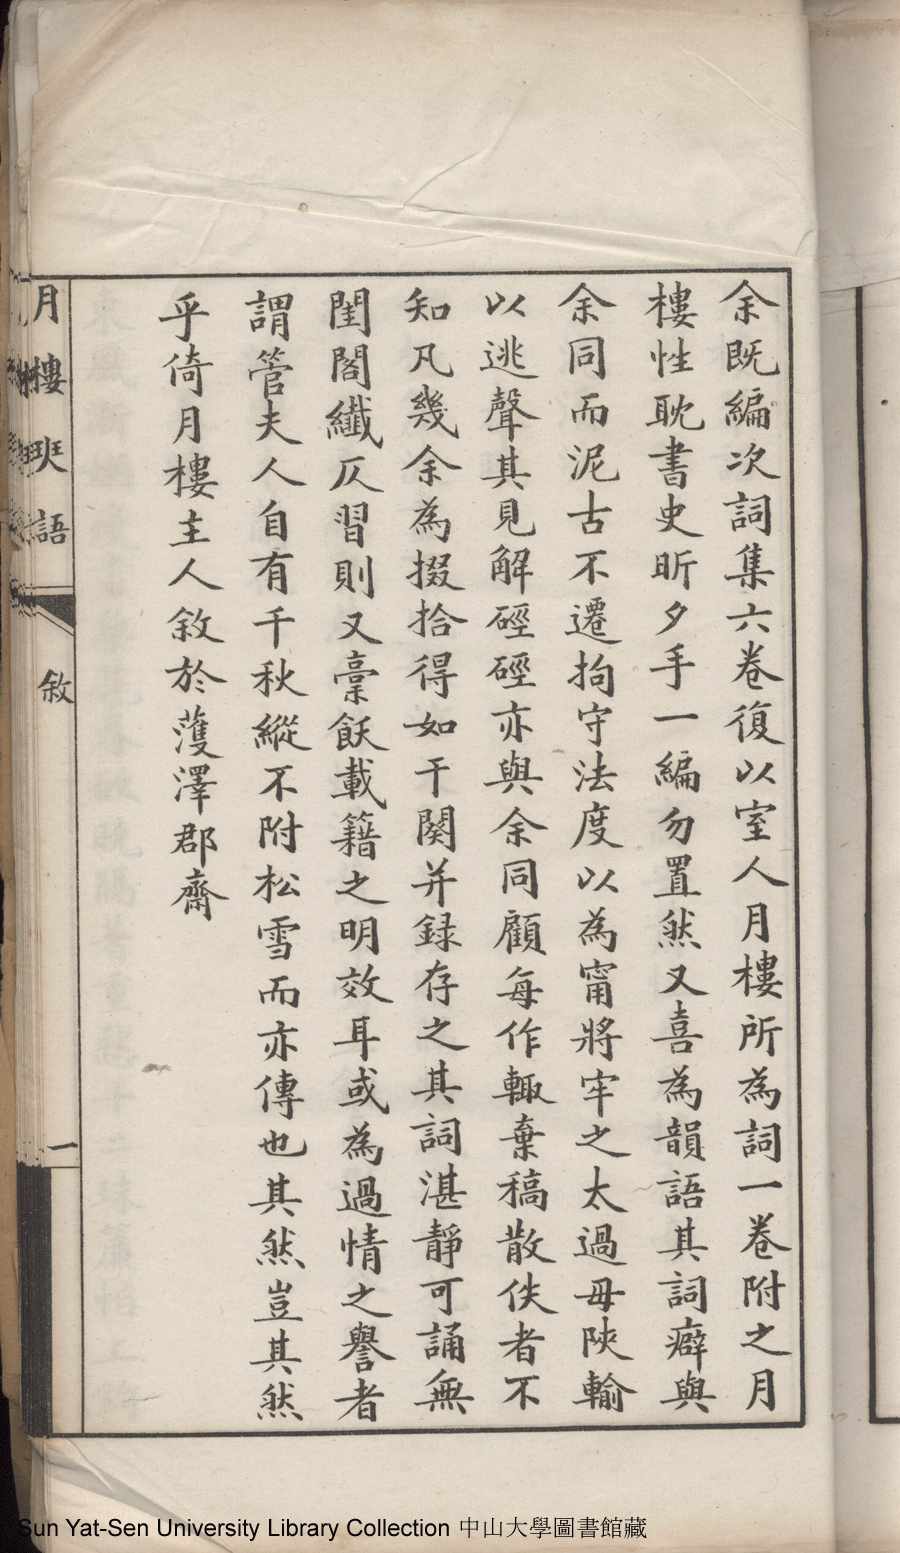 余既編次詞集六卷復以室人月樓所為詞一卷附之月
樓性耽書史昕夕手一編勿置然又喜為韻語其詞癖與
余同而泥古不遷拘守法度以為甯將牢之太過毋陜輸
以逃聲其見解硜硜亦與余同顧每作輙棄稿散佚者不
知凡幾余為掇拾得如干闋并録存之其詞湛靜可誦無
閨閤纖仄習則又稾飫載籍之明效耳或為過情之譽者
謂管夫人自有千秋縱不附松雪而亦傳也其然豈其然
乎倚月樓主人敘於濩澤郡齋
月樓琰語
敘
一
Sun Yat-Sen University Library Collection 中山大學圖書館藏